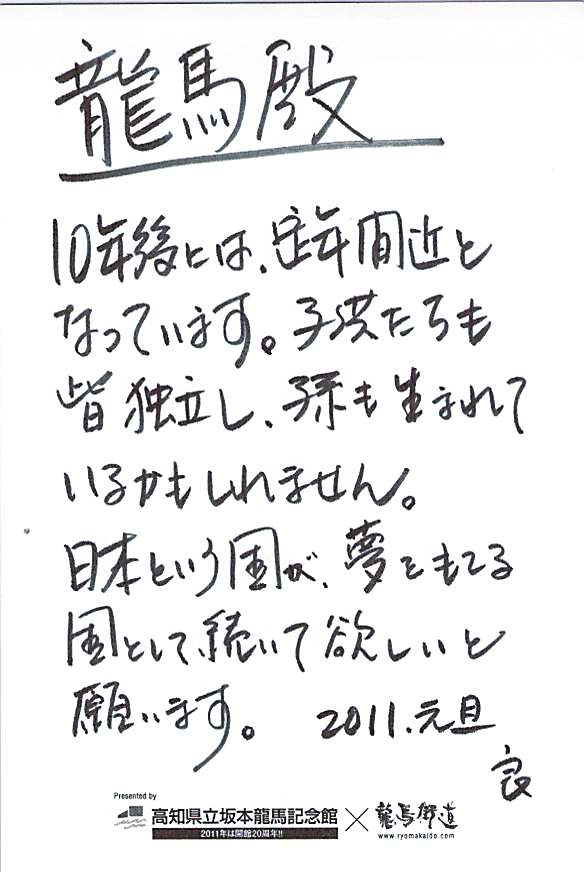 龍馬殿
10年後には、定年間近と
なっています。子供たちも
皆独立し、孫も生まれて
いるかもしれません。
日本という国が、夢をもてる
国として、続いて欲しいと
願います。 2011.元旦
良
Presented by
高知県立坂本龍馬記念館 × 龍馬街道
2011年は開館20周年!! www.ryomakaido.com